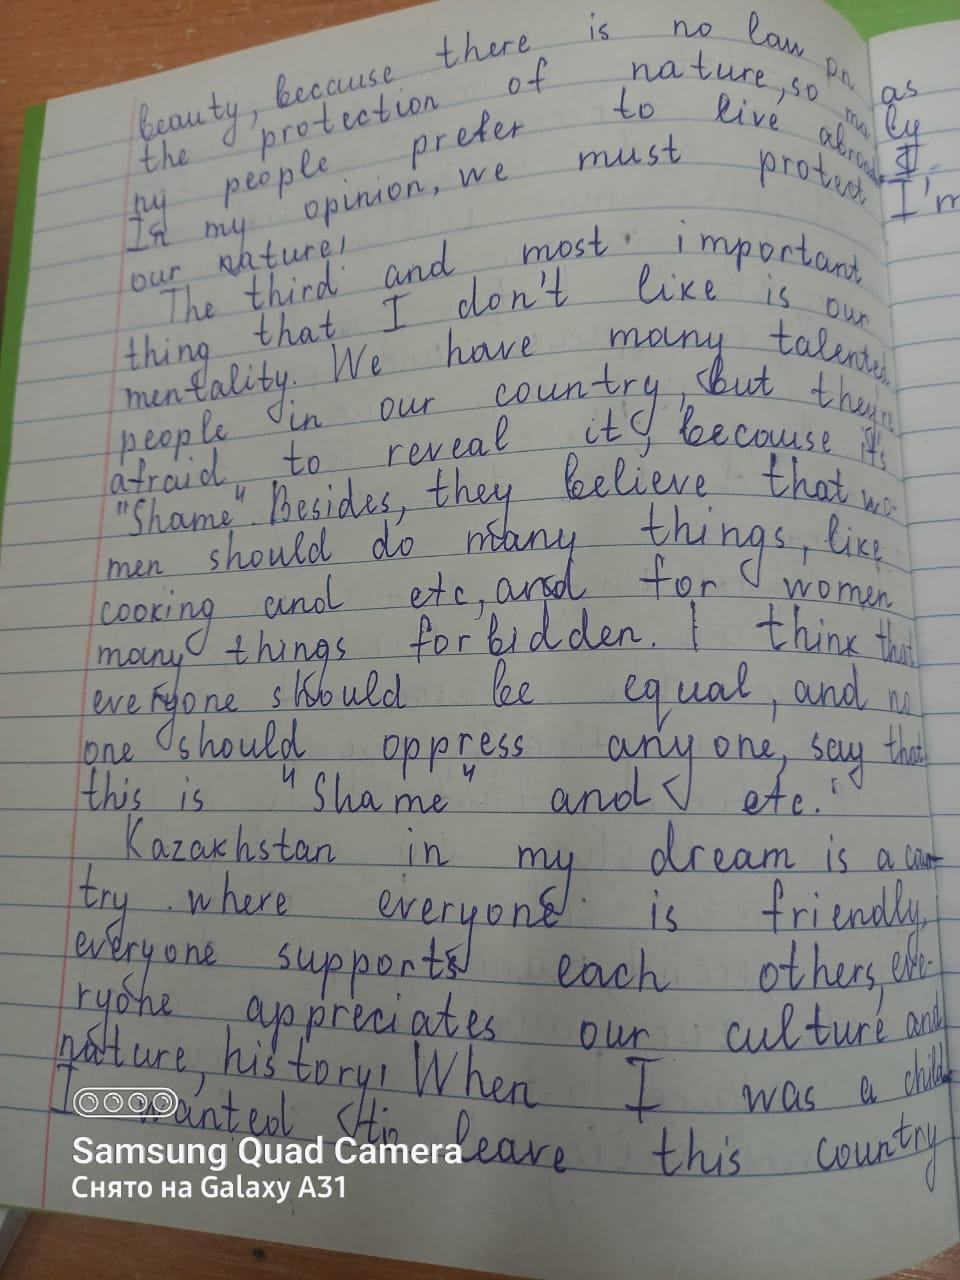 beauty, because there is no law on
the protection of nature, so ma
ny people prefer to live abroad.
In my opinion, we must protect
our nature!
The third and most important
thing that I don't like is our
mentality. We have many talented
people in our country, but they're
afraid to reveal it, because it's
"Shame". Besides, they believe that wo-
men should do many things, like
cooking and etc, and for women
many things forbidden. I think that
everyone should be equal, and no
one should oppress anyone, say that
this is "Shame" and etc.
Kazakhstan in my dream is a coun-
try where everyone is friendly,
everyone supports each others, eve-
ryone appreciates our culture and
nature, history! When I was a child
I wanted to leave this country
as
ly
I
I'm
Samsung Quad Camera
Снято на Galaxy A31